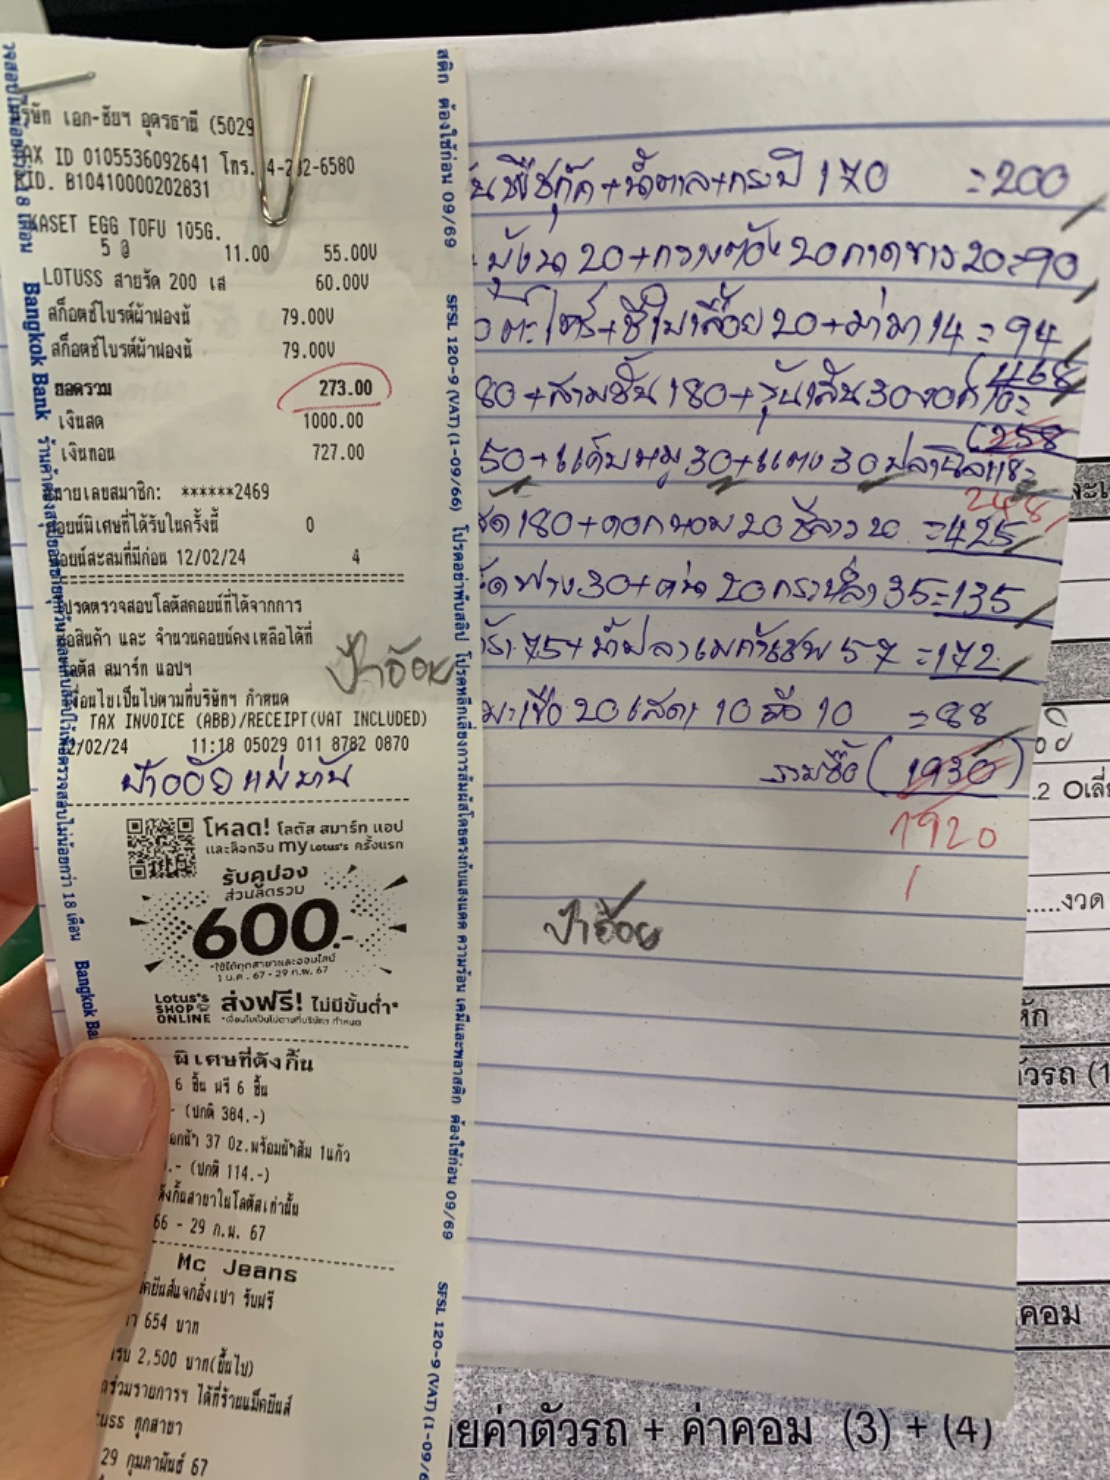 บริษัท เอก-ชัยฯ อุดรธานี (5029
TAX ID 0105536092641 โทร.
-6580
B10410000202831
KASET EGG TOFU 105G.
5 @ 11.00 55.00V
LOTUSS สายรัด 200 เส 60.00V
สก็อตช์ไบรต์ผ้าฟองน้ 79.00V
สก็อตช์ไบรต์ผ้าฟองน้ 79.00V
ยอดรวม 273.00
เงินสด 1000.00
เงินทอน 727.00
หมายเลขสมาชิก: ******2469
คอยน์พิเศษที่ได้รับในครั้งนี้ 0
คอยน์สะสมที่มีก่อน 12/02/24 4
โปรดตรวจสอบโลตัสคอยน์ที่ได้จากการ
ซื้อสินค้า และ จำนวนคอยน์คงเหลือได้ที่
โลตัส สมาร์ท แอปฯ
เงื่อนไขเป็นไปตามที่บริษัทฯ กำหนด
TAX INVOICE (ABB)/RECEIPT(VAT INCLUDED)
2/02/24 11:18 05029 011 8782 0870
ป้าอ้อย
ป้าอ้อยแม่บ้าน
โหลด! โลตัส สมาร์ท แอป
และล็อกอิน my Lotus's ครั้งแรก
รับคูปอง
ส่วนลดรวม
600.-
*ใช้ได้ทุกสาขาและออนไลน์
1 ม.ค. 67 - 29 ก.พ. 67
Lotus's SHOP ONLINE ส่งฟรี! ไม่มีขั้นต่ำ*
*เงื่อนไขเป็นไปตามที่บริษัทฯ กำหนด
พิเศษที่ดังกิ้น
6 ชิ้น ฟรี 6 ชิ้น
- (ปกติ 384.-)
37 Oz.พร้อมน้ำส้ม 1แก้ว
.- (ปกติ 114.-)
ดังกิ้นสาขาในโลตัสเท่านั้น
66 - 29 ก.พ. 67
Mc Jeans
654 บาท
2,500 บาท(ขึ้นไป)
ร่วมรายการฯ ได้ที่ร้านแม็คยีนส์
tuss ทุกสาขา
29 กุมภาพันธ์ 67
Bangkok Bank
SFSL 120-9 (VAT) (1-09/66) โปรดอย่าพับสลิป โปรดหลีกเลี่ยงการสัมผัสโดยตรงกับแสงแดด ความร้อน เคมีและพลาสติก ต้องใช้ก่อน 09/69
SFSL 120-9 (VAT) (1-09/6
พืชกุ๊ก+น้ำตาล+กะปิ 170 =200
20+กวางตุ้ง 20 กาดขาว 20=90
ตะไคร้+ชีใบเลื่อย 20+มาม่า 14 =94
(468
80+สามชั้น 180+วุ้นเส้น 30 งอก 10=
(258
50+แค็บหมู 30+แตง 30 ปลานิล 118=
248
180+ดอกหอม 20 ชีลาว 20 =425
ฟาง 30+ต้น 20 กวางปลา 35=135
75+น้ำปลาเมกาเชฟ 57 =172
มะเขือ 20 เสดา 10 10 =88
รวมซื้อ (1930)
1920
ป้าอ้อย
.2 Oเลี่
.....งวด
หัก
ตัวรถ (1
คอม
ยค่าตัวรถ + ค่าคอม (3) + (4)